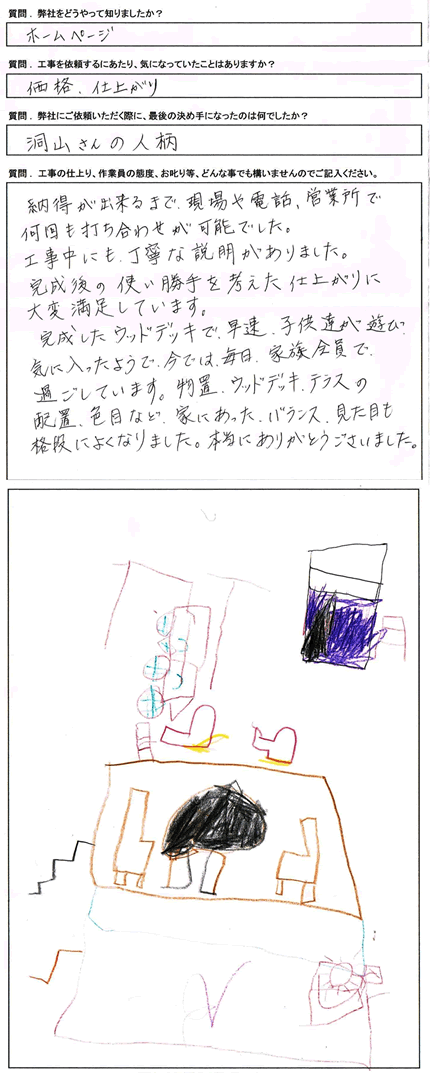 質問．弊社をどうやって知りましたか？
ホームページ
質問．工事を依頼するにあたり、気になっていたことはありますか？
価格、仕上がり
質問．弊社にご依頼いただく際に、最後の決め手になったのは何でしたか？
洞山さんの人柄
質問．工事の仕上り、作業員の態度、お叱り等、どんな事でも構いませんのでご記入ください。
納得が出来るまで、現場や電話、営業所で
何回も打ち合わせが可能でした。
工事中にも、丁寧な説明がありました。
完成後の使い勝手を考えた仕上がりに
大変満足しています。
完成したウッドデッキで、早速、子供達が遊び、
気に入ったようで、今では、毎日、家族全員で、
過ごしています。物置、ウッドデッキ、テラスの
配置、色目など、家にあった、バランス、見た目も
格段によくなりました。本当にありがとうございました。